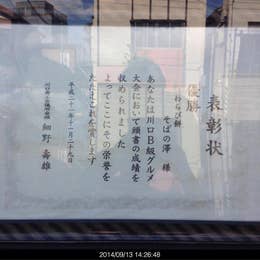 表彰状
優勝
わらび餅
そばの澤 様
あなたは川口B級グルメ
大会において頭書の成績を
収められました
よってここにその栄誉を
たたえこれを賞します
平成二十一年十一月二十九日
細野 壽雄
2014/09/13 14:26:48